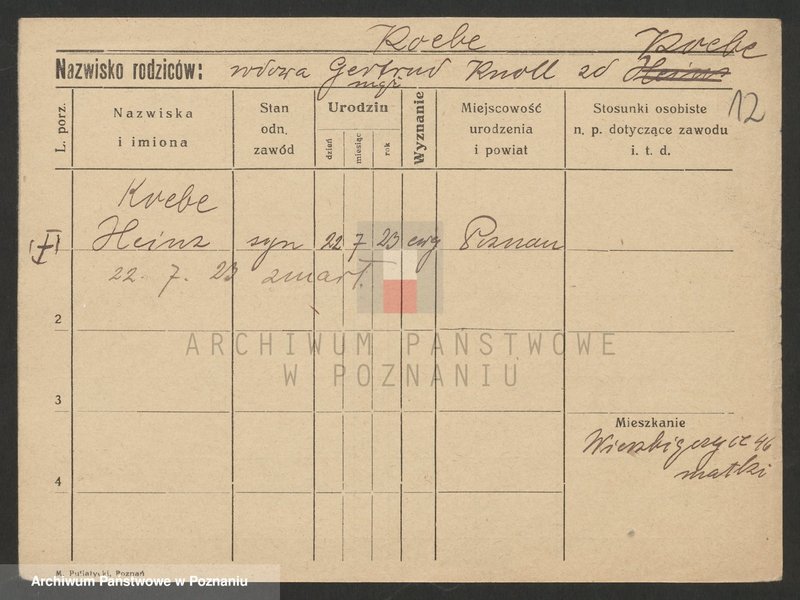 Koebe Koebe
Nazwisko rodziców: wdowa Gertrud Knoll zd Heinz
12
L. porz.
Nazwiska i imiona
Stan odn. zawód
Urodzin
dzień
miesiąc
rok
Wyznanie
Miejscowość urodzenia i powiat
Stosunki osobiste n. p. dotyczące zawodu i. t. d.
Koebe
Heinz syn 22 7 23 ewg Poznan
22. 7. 23 zmarł.
2
ARCHIWUM PAŃSTWOWE
W POZNANIU
3
Mieszkanie
46
matki
4
M. Putiatycki, Poznań
Archiwum Państwowe w Poznaniu